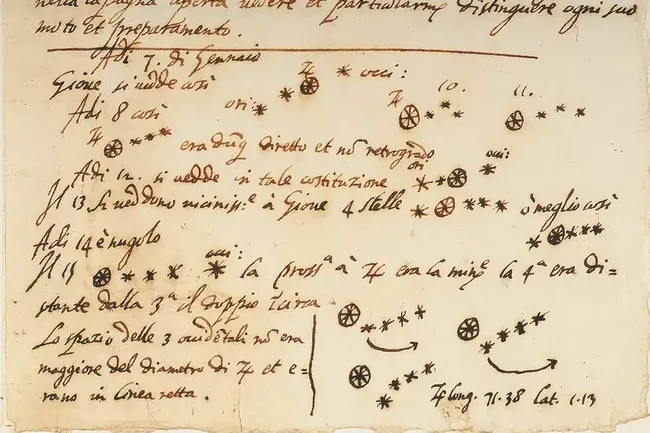 nella cāpagna aperta vedere et particolarmᵉ distinguere ogni suo
moto et preparamento.
Adi 7. di Gennaio
Giove si vedde così ♃ * occi:
Adi 8 così ori: * * ♃ 10. 11.
♃ era dūq diretto et nō retrogrado
Adi 12. si vedde in tale costituzione ori * * occi: *
Il 13 si veddono vicinissᵉ à Giove 4 stelle * * * * ò meglio così
Adi 14 è nugolo
Il 15 * * * * occi: la prossᵃ à ♃ era la minᵉ la 4ᵃ era di=
stante dalla 3ᵃ il doppio īcirca
Lo spazio delle 3 occidētali nō era
maggiore del diametro di ♃ et e=
rano in linea retta.
♃ long. 71.38 Lat. 1.13